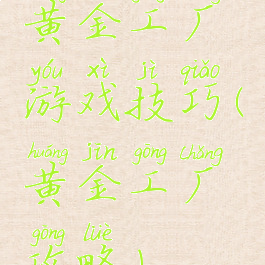 黄金工厂
yóu xì jì qiǎo
游戏技巧(
huáng jīn gōng chǎng
黄金工厂
gōng lüè
攻略)